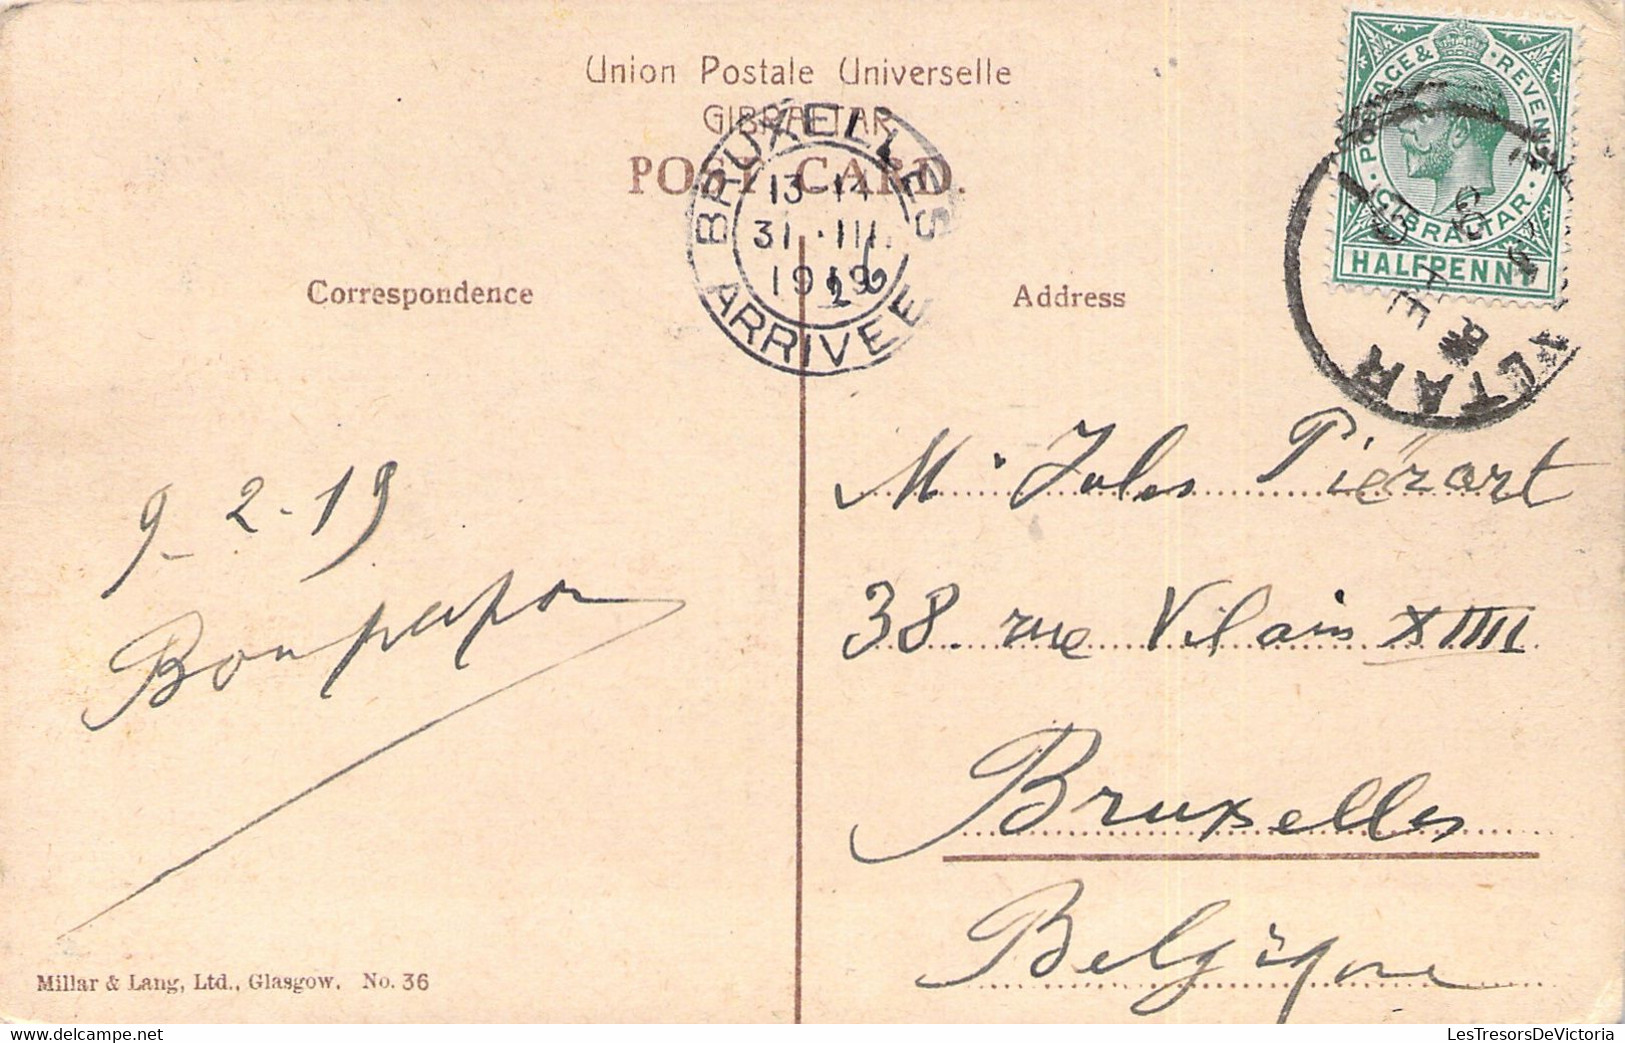 Union Postale Universelle
GIBRALTAR
POST CARD.
BRUXELLES
13-14
31·III
1919
26
ARRIVEE
POSTAGE & REVENUE
GIBRALTAR
HALFPENNY
TAR
Correspondence
Address
9-2-19
Bonpapa
Mr Jules Piérart
38 rue Vilain XIIII
Bruxelles
Belgique
Millar & Lang, Ltd., Glasgow. No. 36
LesTresorsDeVictoria